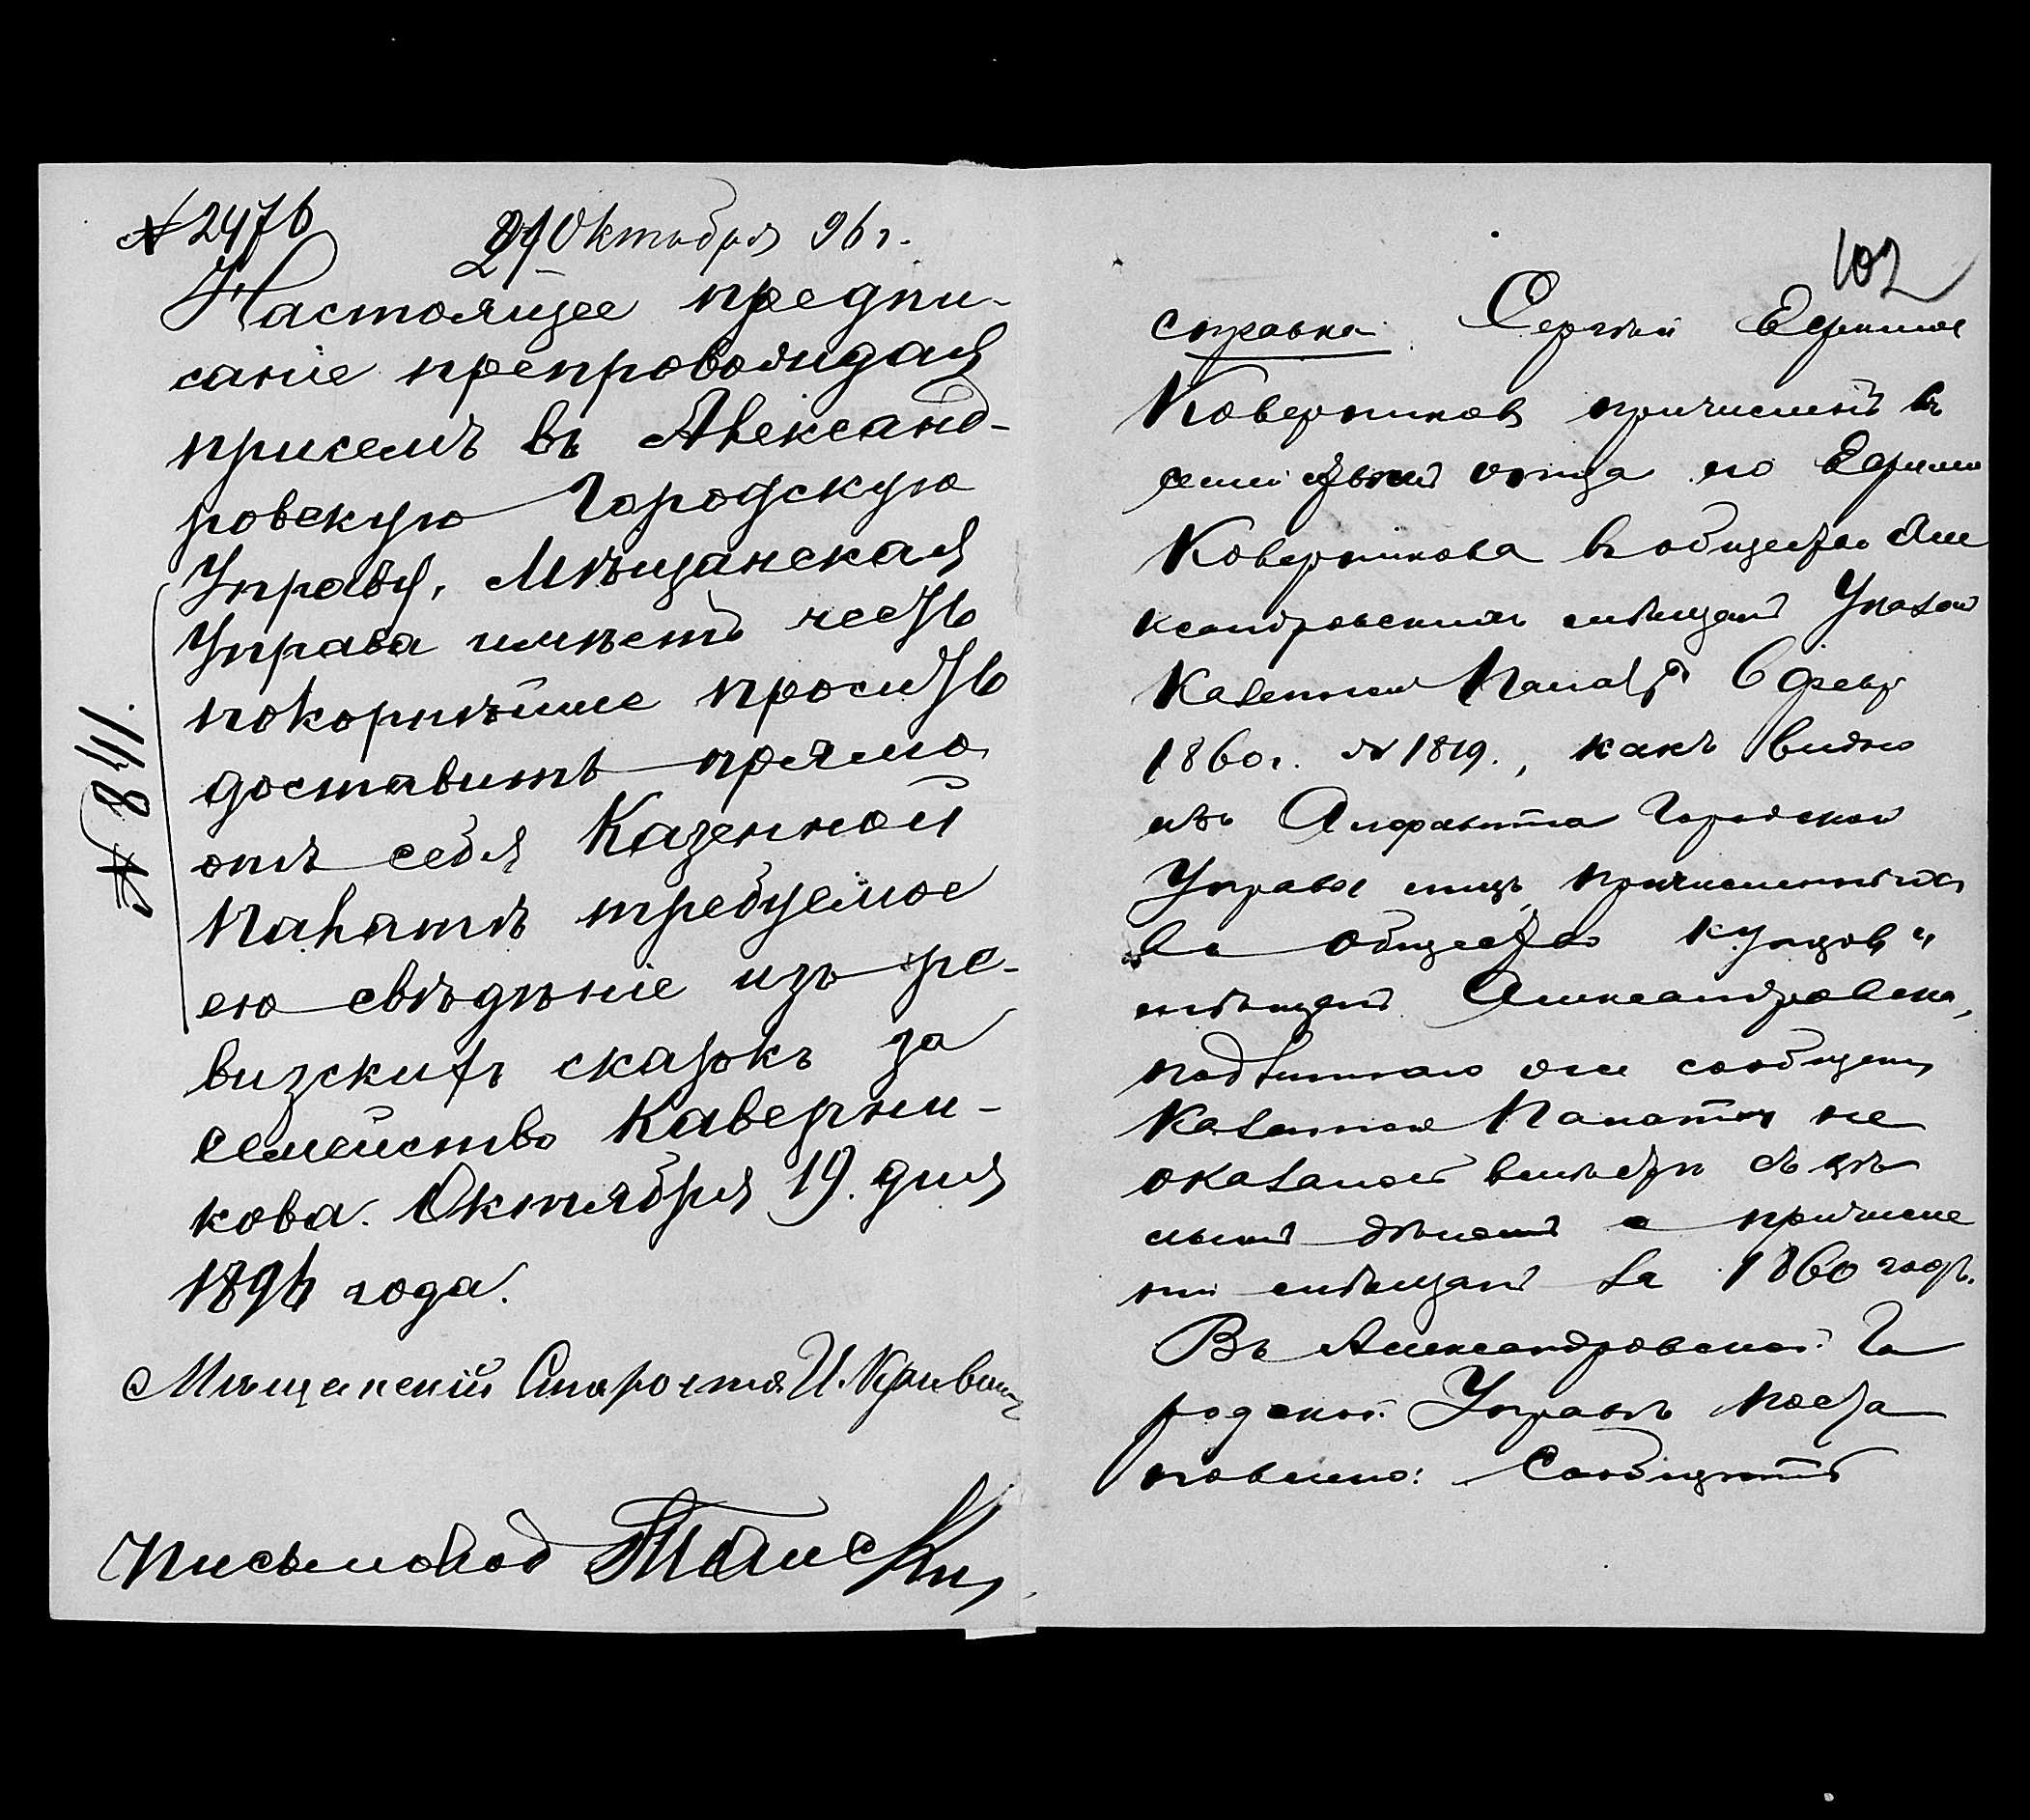 № 2476 21 Октября 96 г.
Настоящее предпи-
сание препровождая
присемъ въ Александ-
ровскую Городскую
Управу, Мѣщанская
Управа имѣетъ честь
покорнѣйше просить
доставить прямо
отъ себя Казенной
Палатѣ требуемое
ею свѣдѣніе изъ ре-
визскихъ сказокъ за
семейство Каверни-
кова. Октября 19. дня
1896 года.
№ 841.
Мѣщанскій Староста И.
Письмовод
102
справка. Сергѣй Ефимов
Коверников причисленъ въ
отца его Ефима
Коверникова въ общество Але
ксандровскихъ мѣщанъ Указом
Казенной Палаты 6 февр
1860 г. № 1819., какъ видно
изъ Алфавита Городской
Управы лицъ, причисленныхъ
въ общество купцов и
мѣщанъ Александровска,
подлинного же сообщения
Казенной Палаты не
оказалось
дѣлами о причисле
нии мѣщанъ за 1860 годъ.
Въ Александровской Го
родской Управѣ поста
новлено: Сообщить